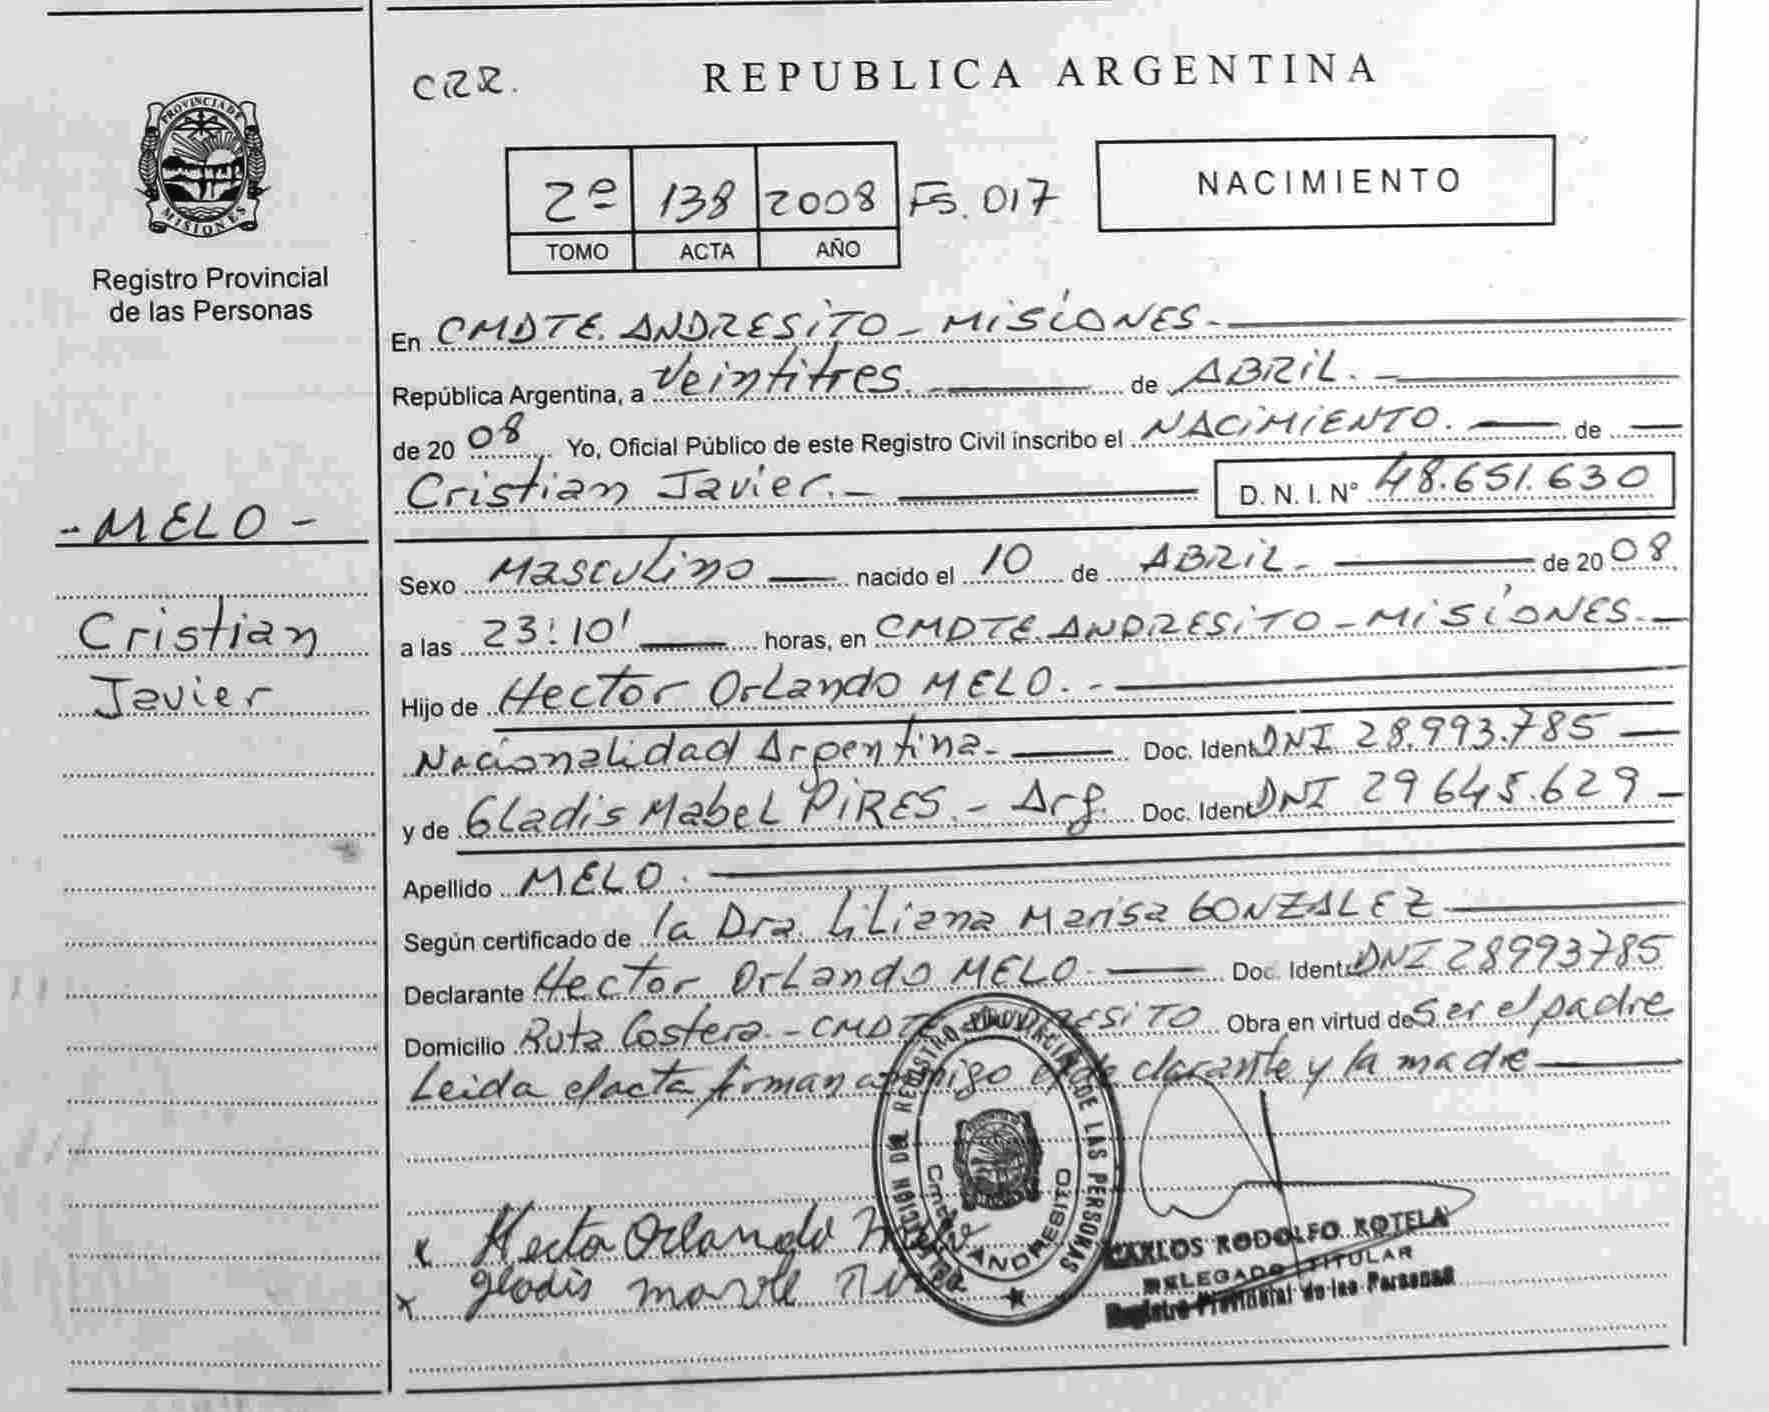 CRR.
REPUBLICA ARGENTINA
PROVINCIA DE MISIONES
Registro Provincial
de las Personas
2º 138 2008 Fs. 017
TOMO ACTA AÑO
NACIMIENTO
En CMDTE. ANDRESITO - MISIONES.-
República Argentina, a Veintitres. de ABRIL.-
de 2008 Yo, Oficial Público de este Registro Civil inscribo el NACIMIENTO. de
Cristian Javier.- D. N. I. Nº 48.651.630
- MELO -
Cristian
Javier
Sexo Masculino nacido el 10 de ABRIL.- de 2008
a las 23:10' horas, en CMDTE. ANDRESITO - MISIONES.-
Hijo de Hector Orlando MELO.-
Nacionalidad Argentina.- Doc. Ident. DNI 28.993.785
y de Gladis Mabel PIRES.- Arg. Doc. Ident. DNI 29645.629 -
Apellido MELO.
Según certificado de la Dra. Liliana Marisa GONZALEZ
Declarante Hector Orlando MELO. Doc. Ident. DNI 28993785
Domicilio Ruta Costera.- CMDTE ANDRESITO Obra en virtud de Ser el padre
Leida el acta firman conmigo el declarante y la madre
DELEGACIÓN DEL REGISTRO PROVINCIAL DE LAS PERSONAS
Cmdte. ANDRESITO
x Hector Orlando Melo
x gladis
CARLOS RODOLFO ROTELA
DELEGADO TITULAR
Registro Provincial de las Personas